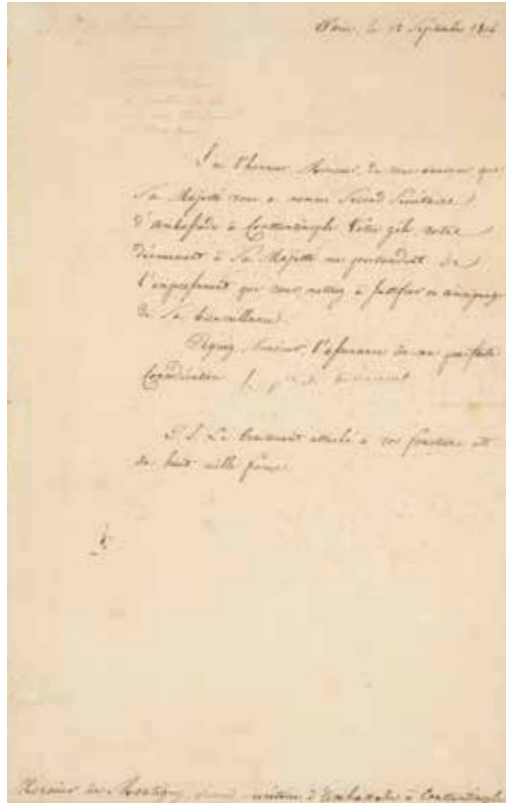 Paris, le 12 Septembre 1814
J'ai l'honneur, Monsieur, de vous annoncer que
Sa Majesté vous a nommé Second Secrétaire
d'Ambassade à Constantinople. Votre zèle, votre
dévouement à Sa Majesté me persuadent de
l'empressement que vous mettrez à justifier ce témoignage
de Sa bienveillance.
Agréez, Monsieur, l'assurance de ma parfaite
Considération
P. S. Le traitement attaché à vos fonctions est
de huit mille francs.
Monsieur de Montigny, second secrétaire d'Ambassade à Constantinople